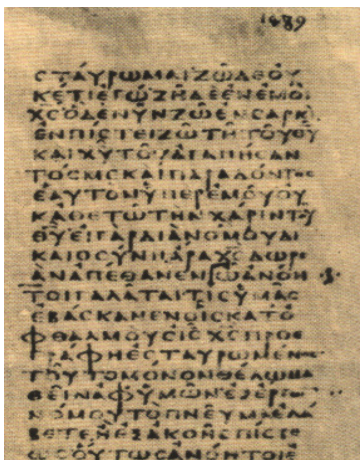 1889
ϹΤΑΥΡΩΜΑΙΖΩΔΕΟΥ
ΚΕΤΙΕΓΩΖΗΔΕΕΝΕΜΟΙ
ΧϹΟΔΕΝΥΝΖΩΕΝϹΑΡΚΙ
ΕΝΠΙϹΤΕΙΖΩΤΗΤΟΥΘΥ
ΚΑΙΧΥΤΟΥΑΓΑΠΗϹΑΝ
ΤΟϹΜΕΚΑΙΠΑΡΑΔΟΝΤΟϹ
ΕΑΥΤΟΝΥΠΕΡΕΜΟΥΟΥ
ΚΑΘΕΤΩΤΗΝΧΑΡΙΝΤΥ
ΘΥΕΙΓΑΡΔΙΑΝΟΜΟΥΔΙ
ΚΑΙΟϹΥΝΗΑΡΑΧϹΔΩΡΕ
ΑΝΑΠΕΘΑΝΕΝΩΑΝΟΗ
ΤΟΙΓΑΛΑΤΑΙΤΙϹΥΜΑϹ
ΕΒΑϹΚΑΝΕΝΟΙϹΚΑΤΟ
ΦΘΑΛΜΟΥϹΙϹΧϹΠΡΟΕ
ΓΡΑΦΗΕϹΤΑΥΡΩΜΕΝ
ΤΟΥΤΟΜΟΝΟΝΘΕΛΩΜΑ
ΘΕΙΝΑΦΥΜΩΝΕΞΕΡΓ
ΝΟΜΟΥΤΟΠΝΕΥΜΑΕΛΑ
ΒΕΤΕΗΕΞΑΚΟΗϹΠΙϹΤΕ
ΩϹΟΥΤΩϹΑΝΟΗΤΟΙΕ